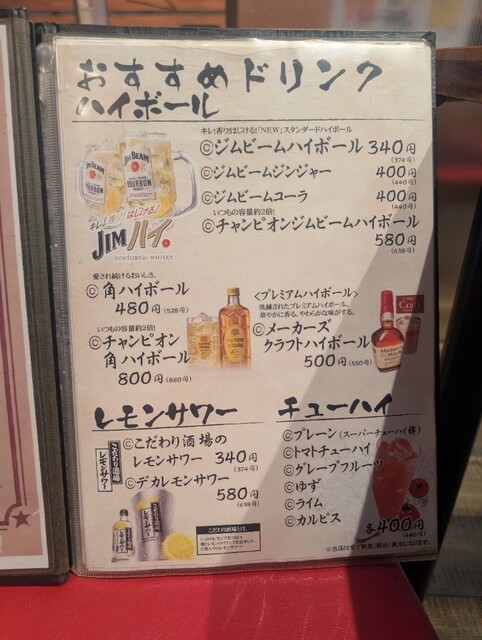 おすすめドリンク
ハイボール
キレ!香りはじける!「NEW」スタンダードハイボール
Ⓒジムビームハイボール 340円
(374円)
Ⓒジムビームジンジャー 400円
(440円)
Ⓒジムビームコーラ 400円
(440円)
いつもの容量約2倍!
Ⓒチャンピオンジムビームハイボール
580円
(638円)
JIM BEAM
BOURBON
キレ!香りはじける!
JIMハイ。
SUNTORY WHISKY
愛され続けるおいしさ。
Ⓒ角ハイボール
480円(528円)
いつもの容量約2倍!
Ⓒチャンピオン
角ハイボール
800円(880円)
〈プレミアムハイボール〉
洗練されたプレミアムハイボール。
華やかに香る、やわらかな味がする。
Ⓒメーカーズ
クラフトハイボール
500円(550円)
レモンサワー
こだわり酒場の
レモンサワー
Ⓒこだわり酒場の
レモンサワー 340円
(374円)
Ⓒデカレモンサワー
580円
(638円)
こだわり酒場とは、
チューハイ
Ⓒプレーン(スーパーチューハイ樽)
Ⓒトマトチューハイ
Ⓒグレープフルーツ
Ⓒゆず
Ⓒライム
Ⓒカルピス
各400円
(440円)
※当店は全て総額(税込)表示になります。